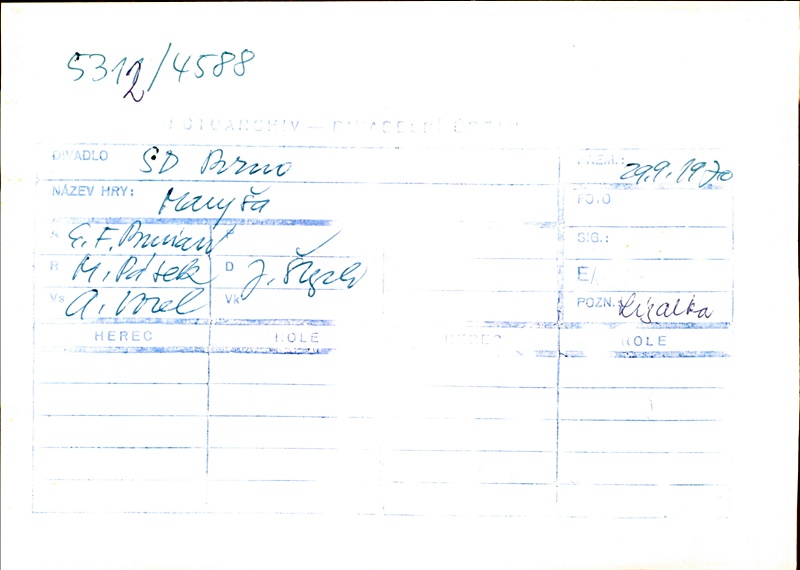 5312/4588
FOTOARCHIV — DIVADELNÍ
DIVADLO SD Brno PREM.: 29.9.1970
NÁZEV HRY: Maryša FOTO
E. F. Burian SIG.:
R M. Pásek D J. E/
Vs A. Vorel Vk POZN. Lízalka
HEREC ROLE HEREC ROLE